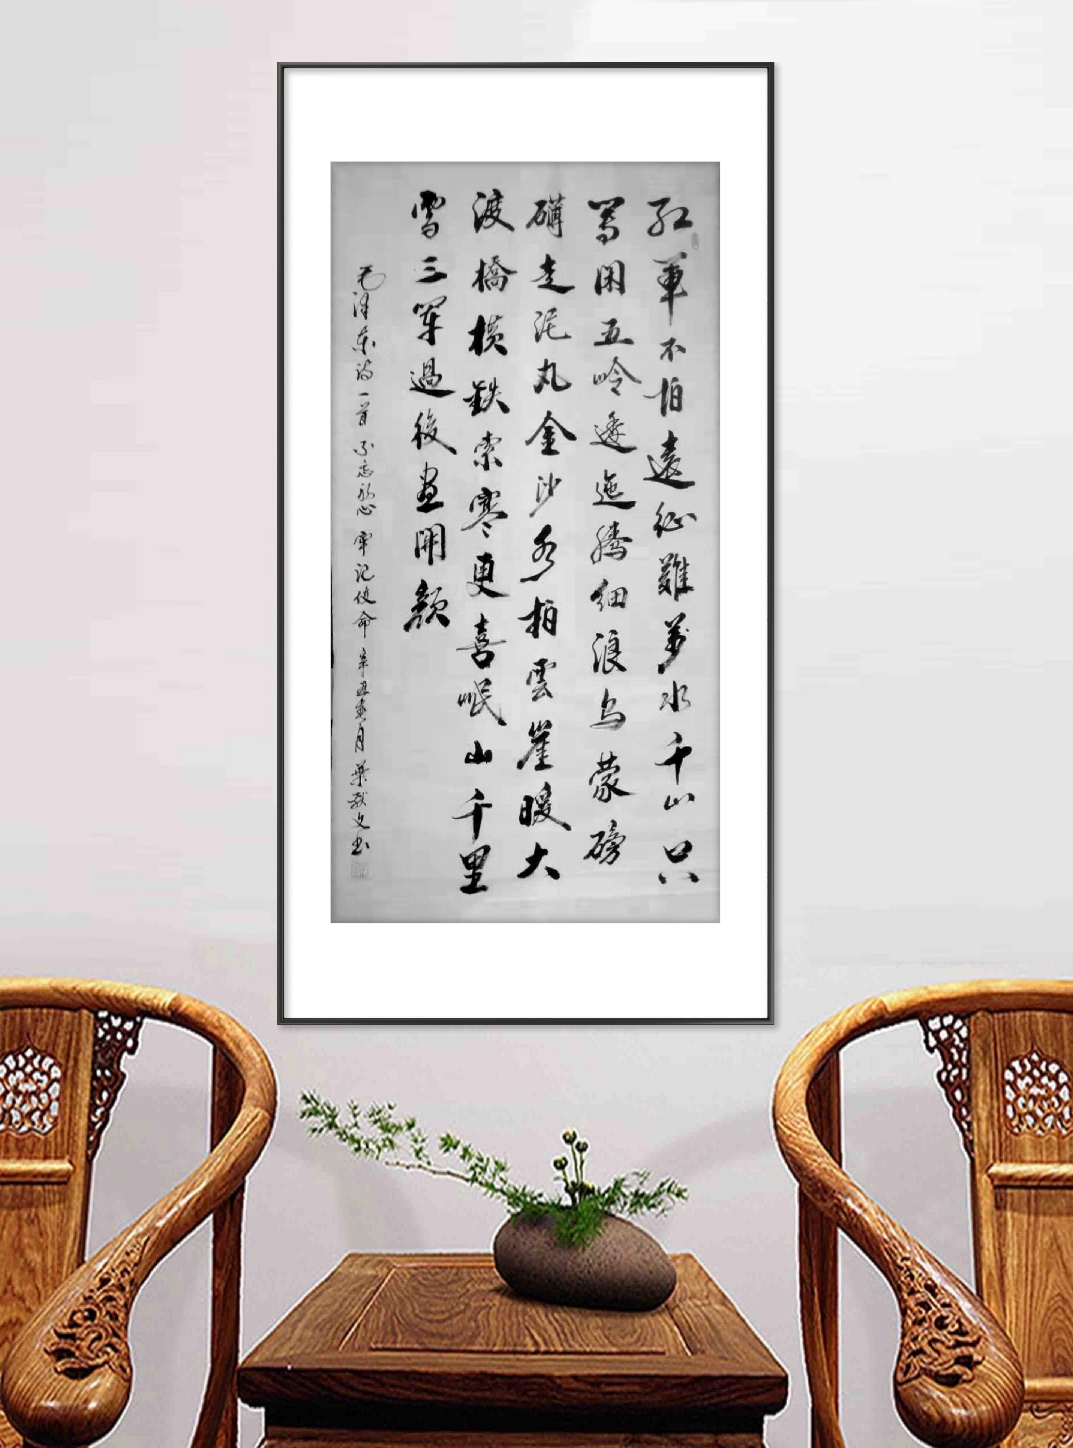 紅軍不怕遠征難萬水千山只
等閑五岭逶迤騰細浪乌蒙磅
礴走泥丸金沙水拍雲崖暖大
渡橋横鉄索寒更喜岷山千里
雪三軍過後盡開顏
毛泽东诗一首 不忘初心 牢记使命 辛丑 月 葉 文书